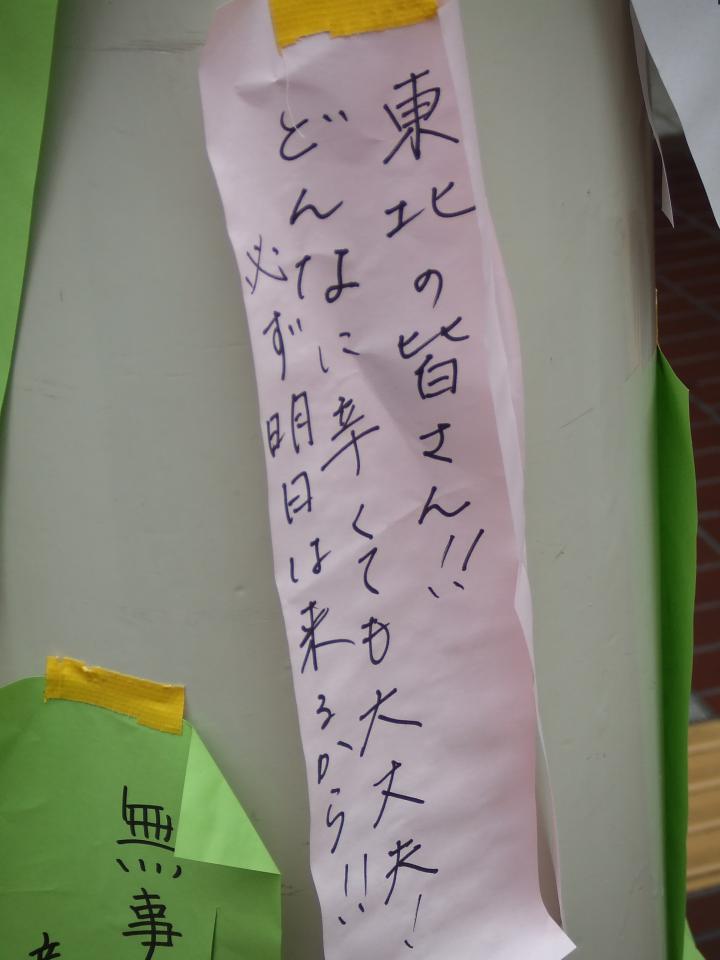 東北の皆さん!!
どんなに辛くても大丈夫!
必ず明日は来るから!!
無事